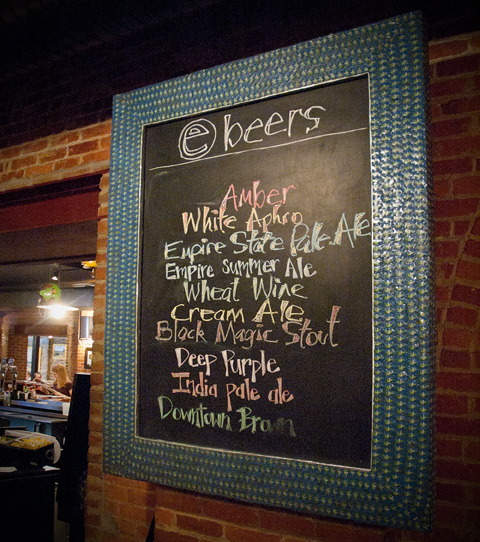 e beers
Amber
White Aphro
Empire State Pale Ale
Empire summer Ale
Wheat Wine
Cream Ale
Black Magic Stout
Deep Purple
India pale ale
Downtown Brown